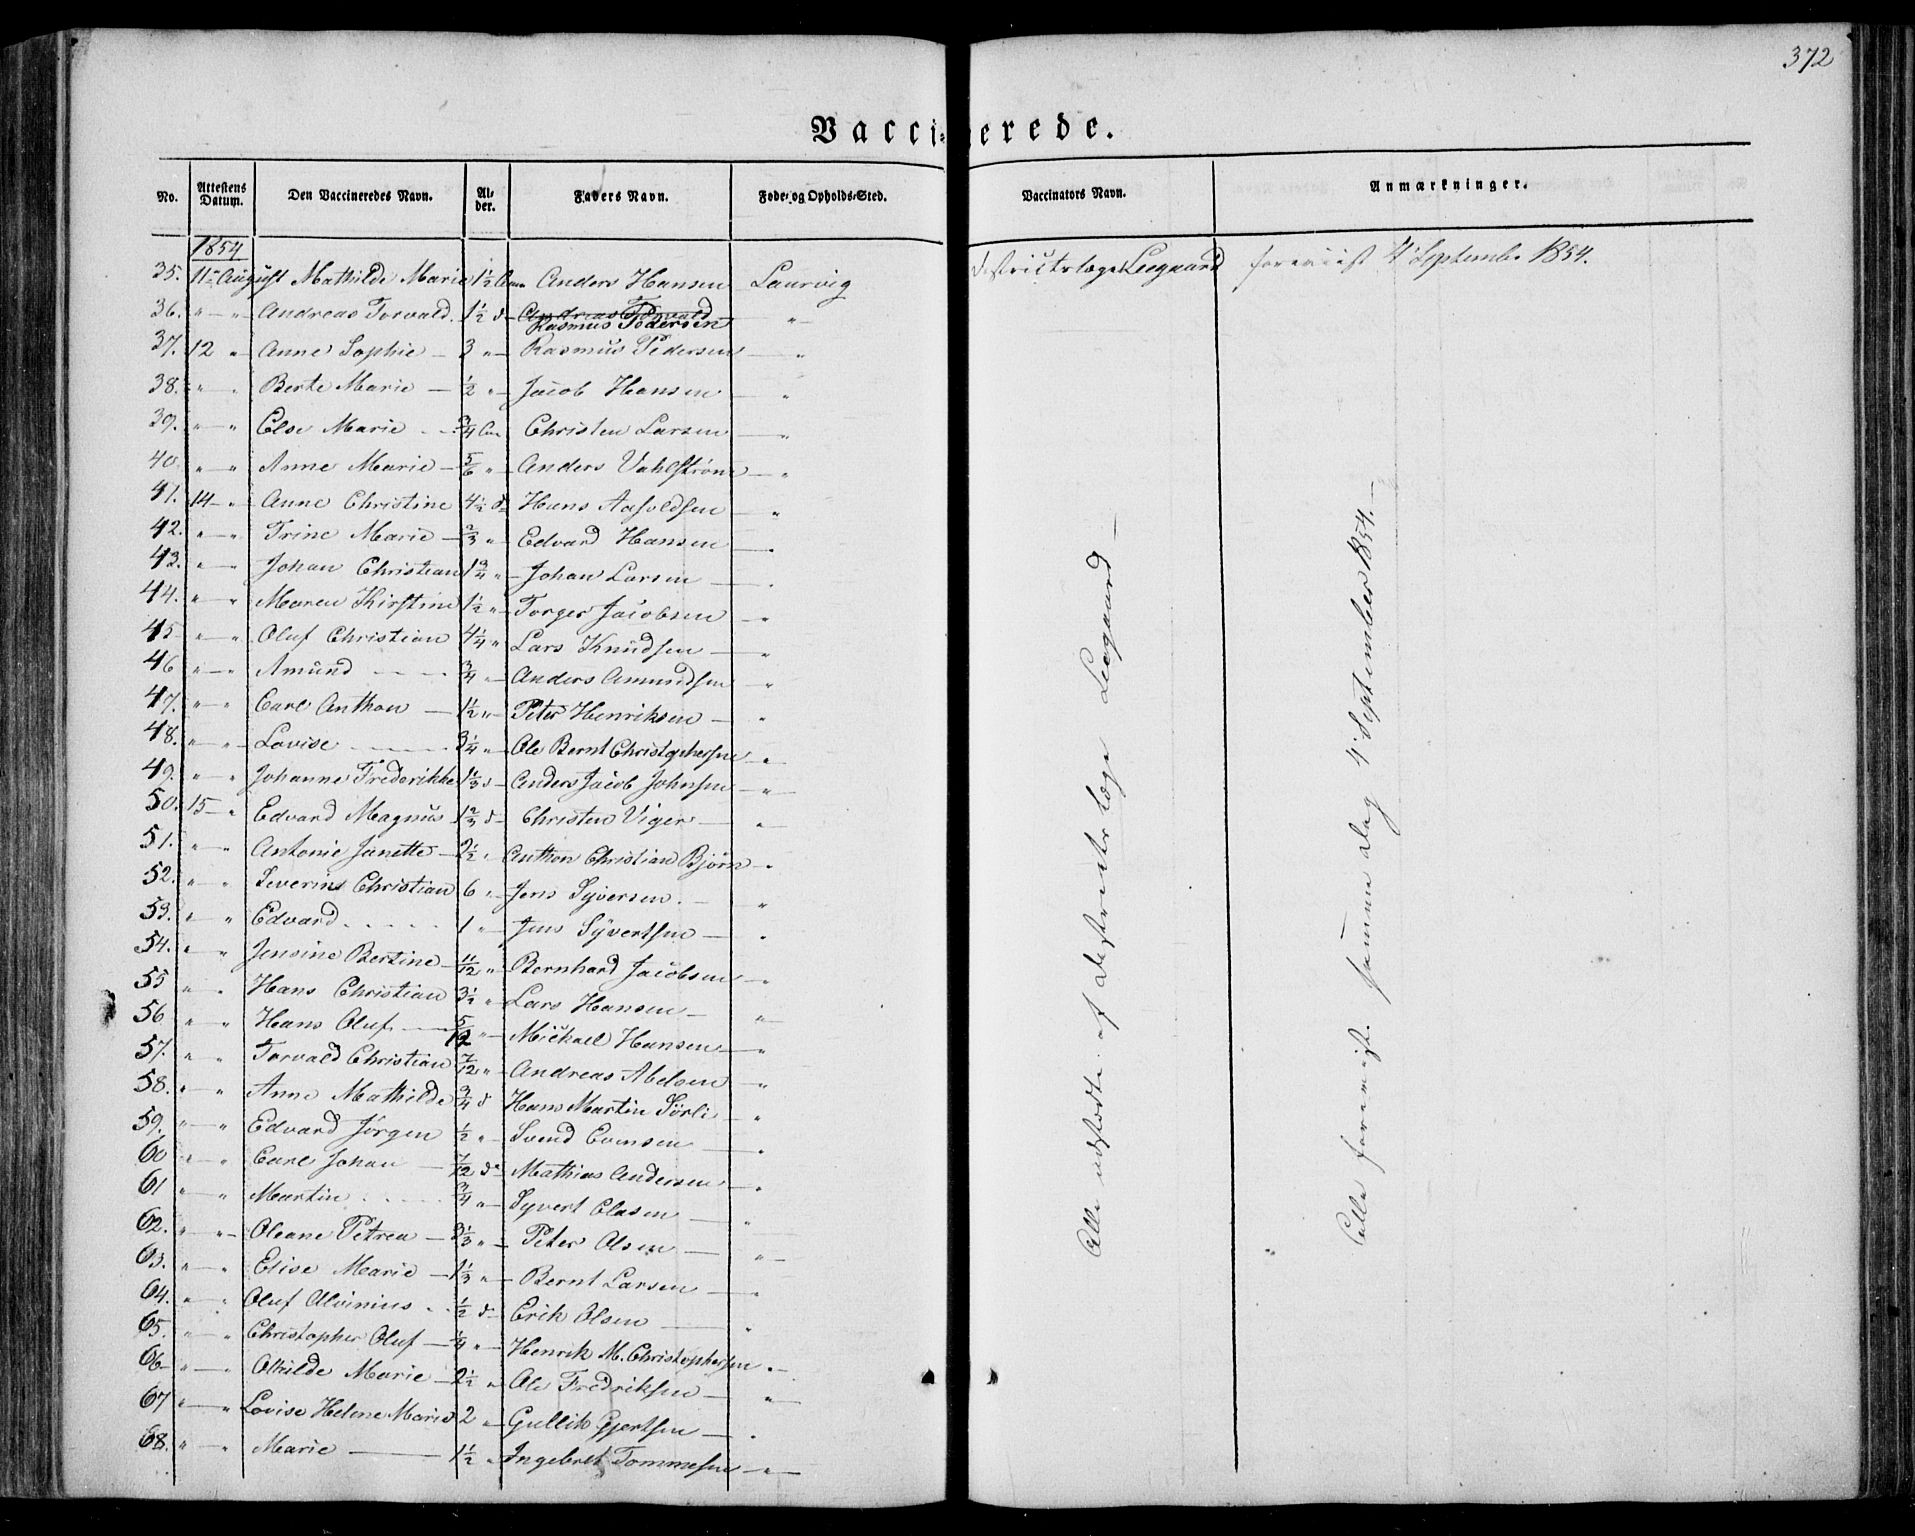 372
Vaccinerede.
No. Attestens Datum. Den Vaccineredes Navn. Al-der. Faders Navn. Føde- og Opholds-Sted. Vaccinators Navn. Anmærkninger.
1854
35. 11te August Mathilde Marie 1½ Anders Hansen Laurvig Districtslæge Leegaard foreviist 4 September 1854.
36. " — " Andreas Torvald. 1½ d Andreas Torvald "
Rasmus Pedersen
37. 12 " Anne Sophie — 3 " Rasmus Pedersen "
38. " " Berte Marie — ½ " Jacob Hansen "
39. " " Else Marie ¾ Christen Larsen "
40 " " Anne Marie — 5/6 " Anders Vahlstrøm "
41. 14 — " Anne Christine 4½ d Hans Aasoldsen "
42. " — " Trine Marie — ⅔ " Edvard Hansen — "
43. " — " Johan Christian 1¾ " Johan Larsen — "
44. " — " Maren Kirstine 1½ " Torger Jacobsen — "
45 " — " Oluf Christian 4¼ " Lars Knudsen — "
46 " — " Amund ¾ " Anders Amundsen — "
47. " — " Carl Anthon — 1½ " Peter Henriksen — "
48. " — " Lovise 3¼ " Ole Bernt Christophersen "
49. " — " Johanne Frederikke 1⅓ d Anders Jacob Johnsen — "
50. 15 — " Edvard Magnus 1⅔ d Christen Viger — "
51. " — " Antonie Janette — 2½ " Anthon Christian Bjørn — "
52. " — " Severins Christian 6 " Jens Syversen. — "
53. " — " Edvard 1 " Jens Syvertsen — "
54. " — " Jensine Bertine — 11/12 " Bernhard Jacobsen — "
55 " — " Hans Christian 3½ " Lars Hansen — "
56 " — " Hans Oluf 5/12 " Mickael Hansen — "
57. " — " Torvald Christian 7/12 " Andreas Abelsen "
58. " — " Anne Mathilde ¾ d Hans Martin Sörli — "
59. " — " Edvard Jörgen ½ " Svend Evensen — "
60 " — " Carl Johan — 7/12 d Mathias Andersen — "
61 " — " Martin ¾ " Syvert Olasen — "
62. " — " Oleane Petrea — 3⅓ " Peter Olsen — "
63. " — " Elise Marie — 1⅓ " Bernt Larsen — "
64. " — " Oluf Alvinius ½ d Erik Olsen — "
65. " — " Christopher Oluf — ¼ " Henrik M. Christophersen "
66 — " — " Othilde Marie — 2½ " Ole Fredriksen — "
67 " — " Lovise Helene Marie 2 " Gullik Gjertsen — "
68. " — " Marie — 1½ " Ingebret Tommesen — "
Alle udstædte af Districtslæge Leegaard —
Alle foreviist samme Dag 4 September 1854. —